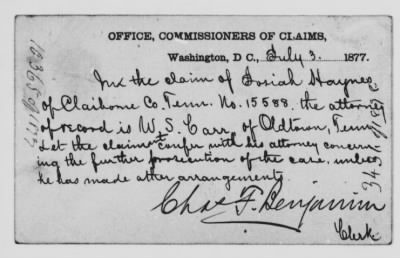 OFFICE, COMMISSIONERS OF CLAIMS,
Washington, D C., July 3. 1877.
In the claim of Josiah Haynes
of Claiborne Co. Tenn. No. 15588, the attorney
of record is W. S. Carr, of Oldtown, Tenn.
Let the claimt confer with his attorney concern-
ing the further prosecution of the case, unless
he has made other arrangements.
Chas F. Benjamin
Clerk.